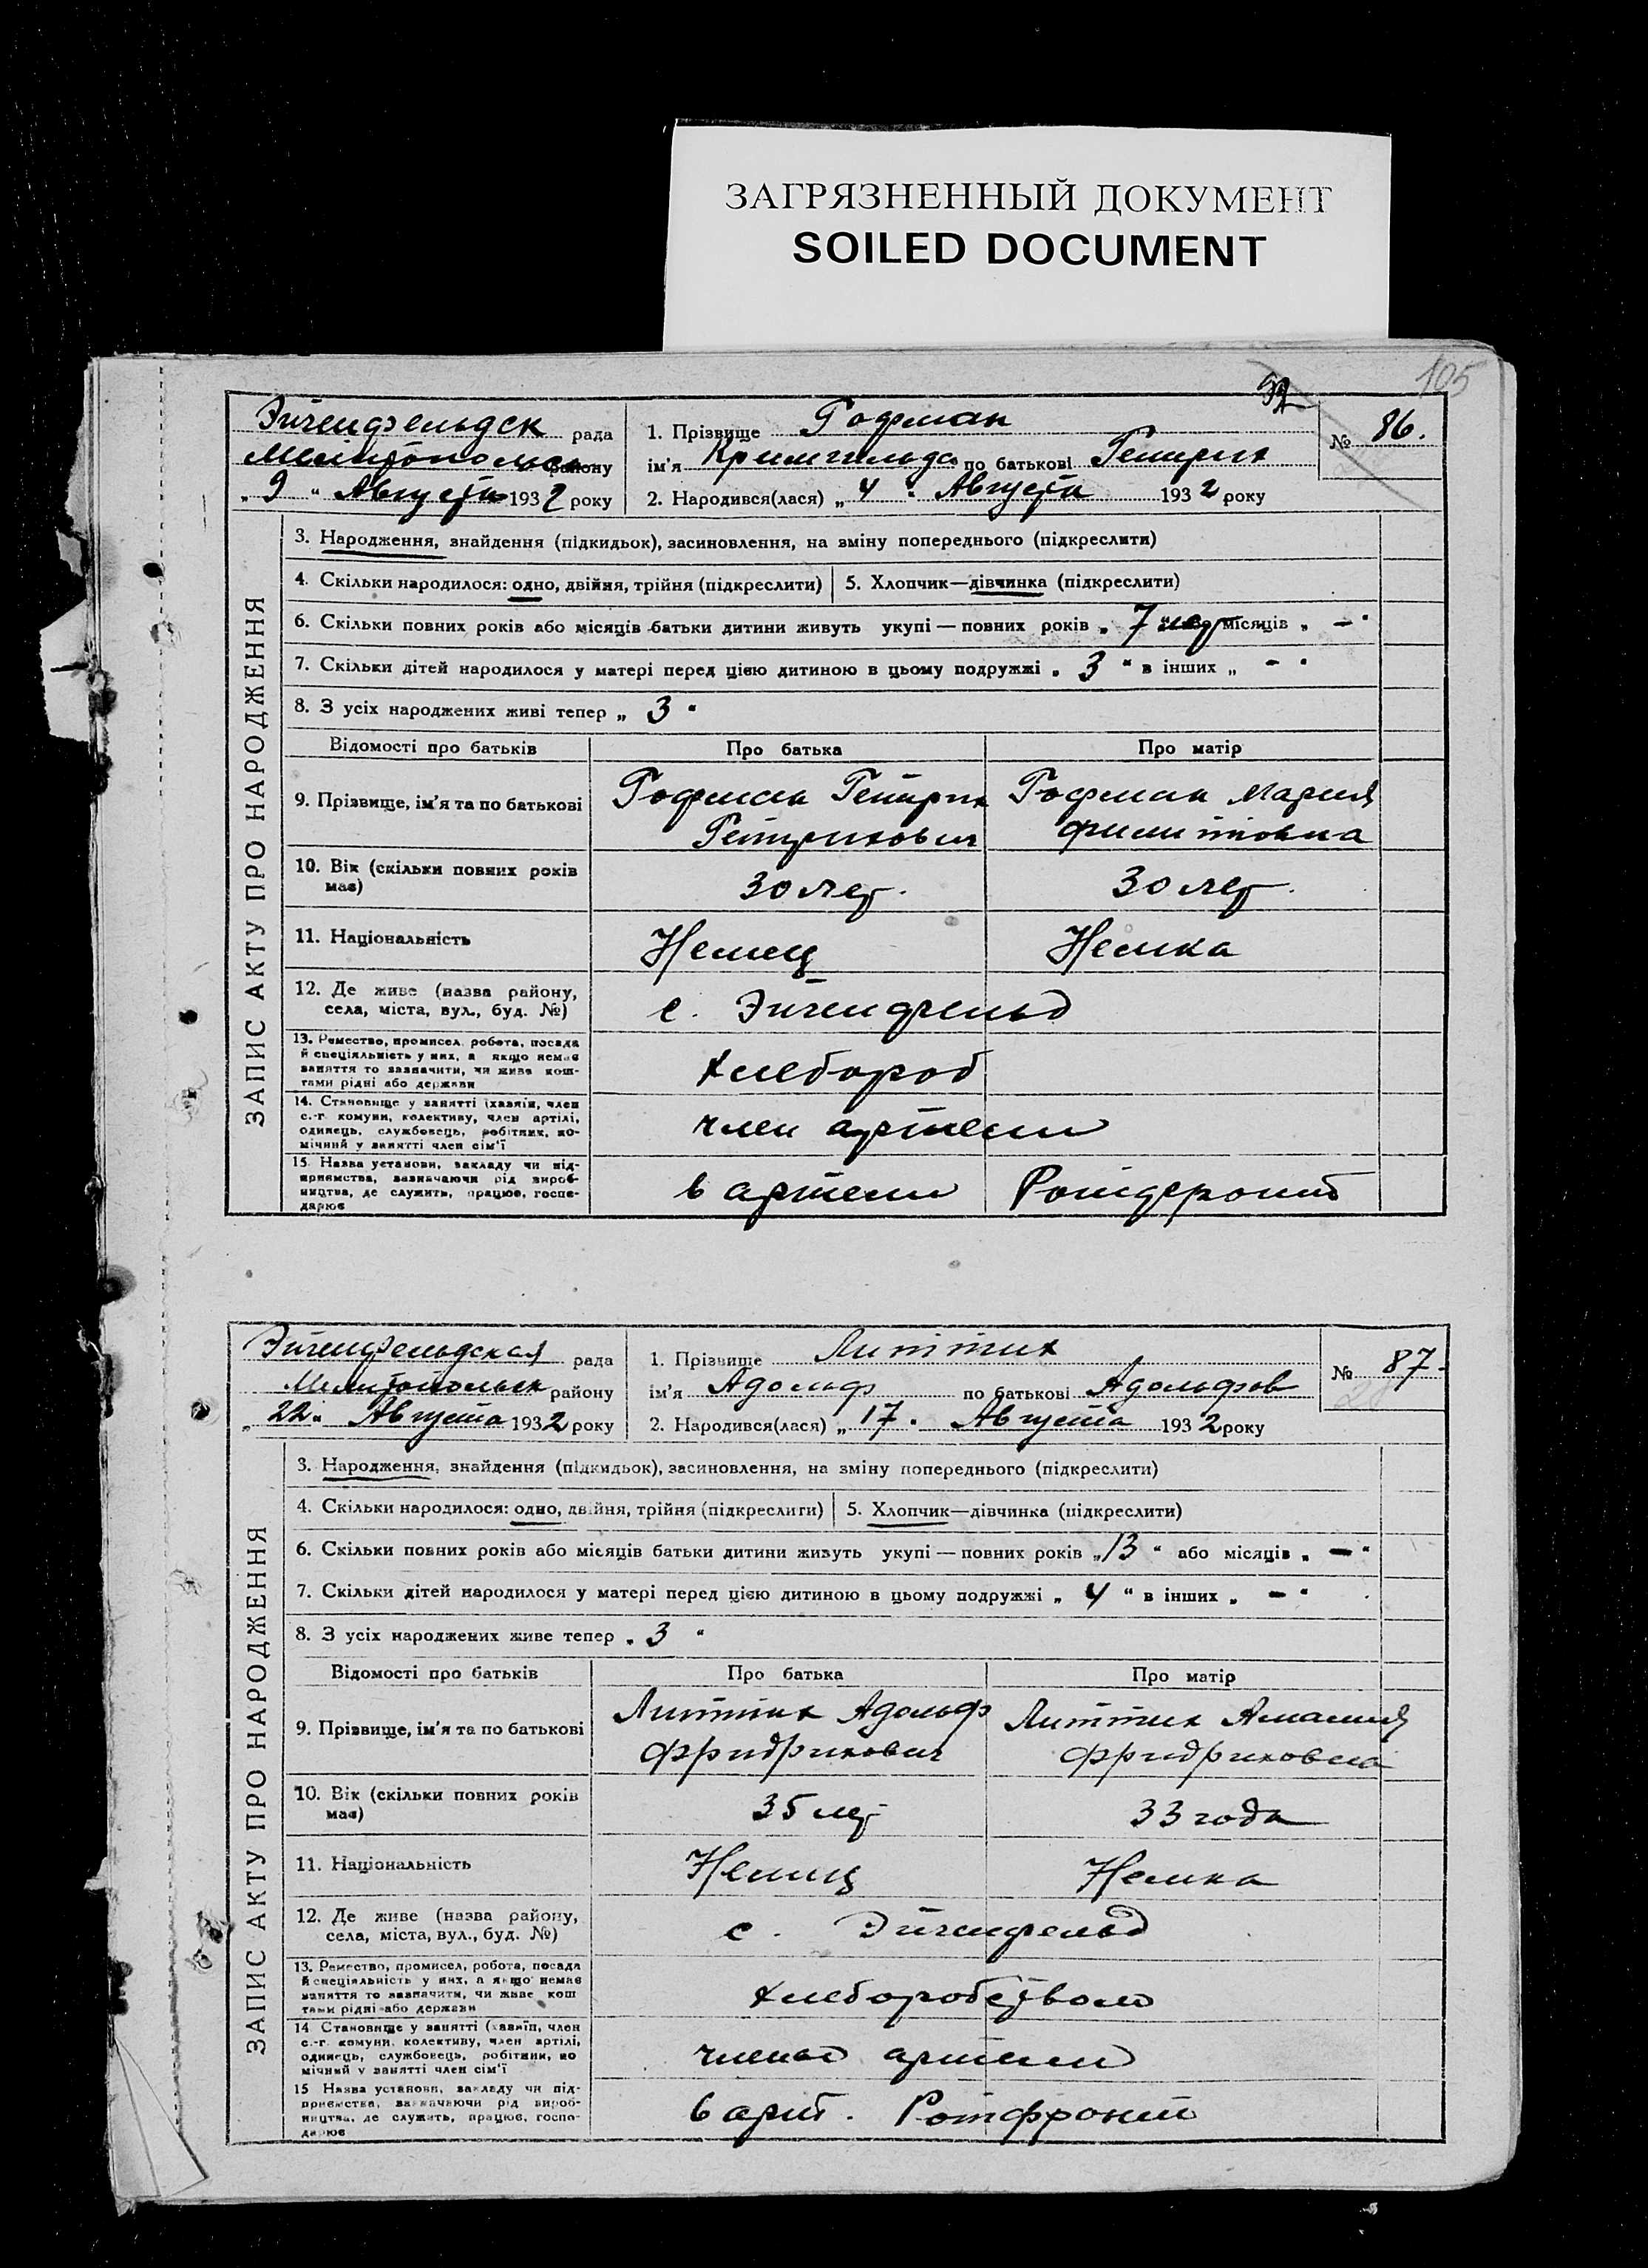 ЗАГРЯЗНЕННЫЙ ДОКУМЕНТ
SOILED DOCUMENT
105
Эйгенфельдск рада
Мелитопольск району
„ 9 “ Августа 1932 року
1. Прізвище Гофман
ім'я Кримгильда по батькові Генрих
2. Народився(лася) „ 4 “ Августа 1932 року
№ 86.
ЗАПИС АКТУ ПРО НАРОДЖЕННЯ
3. Народження, знайдення (підкидьок), засиновлення, на зміну попереднього (підкреслити)
4. Скільки народилося: одно, двійня, трійня (підкреслити) 5. Хлопчик—дівчинка (підкреслити)
6. Скільки повних років або місяців батьки дитини живуть укупі — повних років „ 7 місяців „ — “
7. Скільки дітей народилося у матері перед цією дитиною в цьому подружжі „ 3 “ в інших „ - “
8. З усіх народжених живі тепер „ 3 “
Відомості про батьків Про батька Про матір
9. Прізвище, ім'я та по батькові Гофман Генрих Гофман Мария
Генрихович Филиповна
10. Вік (скільки повних років має) 30 лет. 30 лет.
11. Національність Немец Немка
12. Де живе (назва району,
села, міста, вул., буд. №) с. Эйгенфельд
13. Ремество, промисел, робота, посада
й спеціяльність у них, а якщо немає
заняття то зазначити, чи живе кош-
тами рідні або держави
Хлебороб
14. Становище у занятті (хазяїн, член
с.-г. комуни, колективу, член артілі,
одинець, службовець, робітник, по-
мічний у занятті член сім'ї
член артели
15. Назва установи, закладу чи під-
приємства, зазначаючи рід вироб-
ництва, де служить, працює, госпо-
дарює
в артели Ротфронт
Эйгенфельдская рада
Мелитопольск району
„ 22 “ Августа 1932 року
1. Прізвище Литтих
ім'я Адольф по батькові Адольфов
2. Народився(лася) „ 17 “ Августа 1932 року
№ 87.
ЗАПИС АКТУ ПРО НАРОДЖЕННЯ
3. Народження, знайдення (підкидьок), засиновлення, на зміну попереднього (підкреслити)
4. Скільки народилося: одно, двійня, трійня (підкреслити) 5. Хлопчик—дівчинка (підкреслити)
6. Скільки повних років або місяців батьки дитини живуть укупі — повних років „ 13 “ або місяців „ — “
7. Скільки дітей народилося у матері перед цією дитиною в цьому подружжі „ 4 “ в інших „ — “
8. З усіх народжених живе тепер „ 3 “
Відомості про батьків Про батька Про матір
9. Прізвище, ім'я та по батькові Литтих Адольф Литтих Амалия
Фридрихович Фридриховна
10. Вік (скільки повних років має) 35 лет 33 года
11. Національність Немец Немка
12. Де живе (назва району,
села, міста, вул., буд. №) с. Эйгенфельд
13. Ремество, промисел, робота, посада
й спеціяльність у них, а якщо немає
заняття то зазначити, чи живе кош
тами рідні або держави
Хлеборобством
14. Становище у занятті (хазяїн, член
с.-г. комуни, колективу, член артілі,
одинець, службовець, робітник, по
мічний у занятті член сім'ї
члены артели
15. Назва установи, закладу чи під-
приємства, зазначаючи рід вироб-
ництва, де служить, працює, госпо-
дарює
в арт. Ротфронт